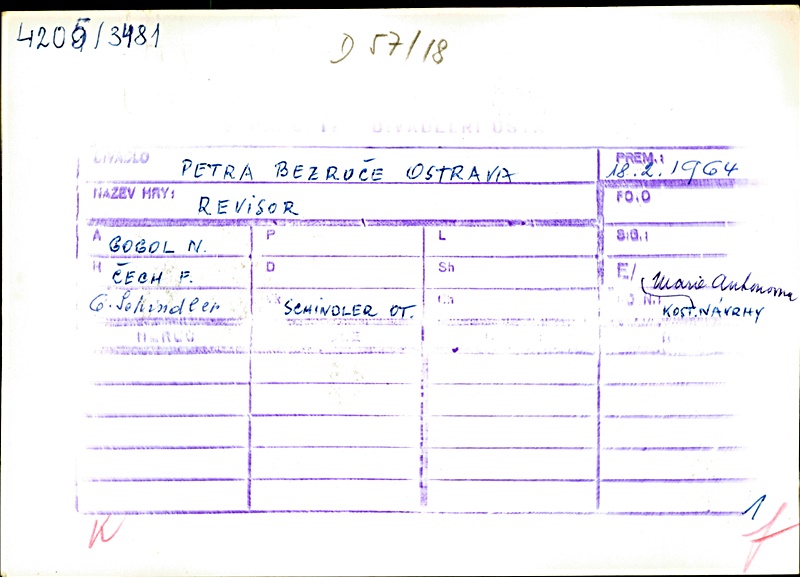 4205/3481
D 57/18
DIVADELNÍ ÚST
DIVADLO PETRA BEZRUČE OSTRAVA PREM.: 18.2.1964
NÁZEV HRY: REVISOR FOTO
A GOGOL N. P L SIG.:
R ČECH F. D Sh E/ Marie Antonova
O. Schindler SCHINDLER OT. KOST. NÁVRHY
HEREC
1
K
f